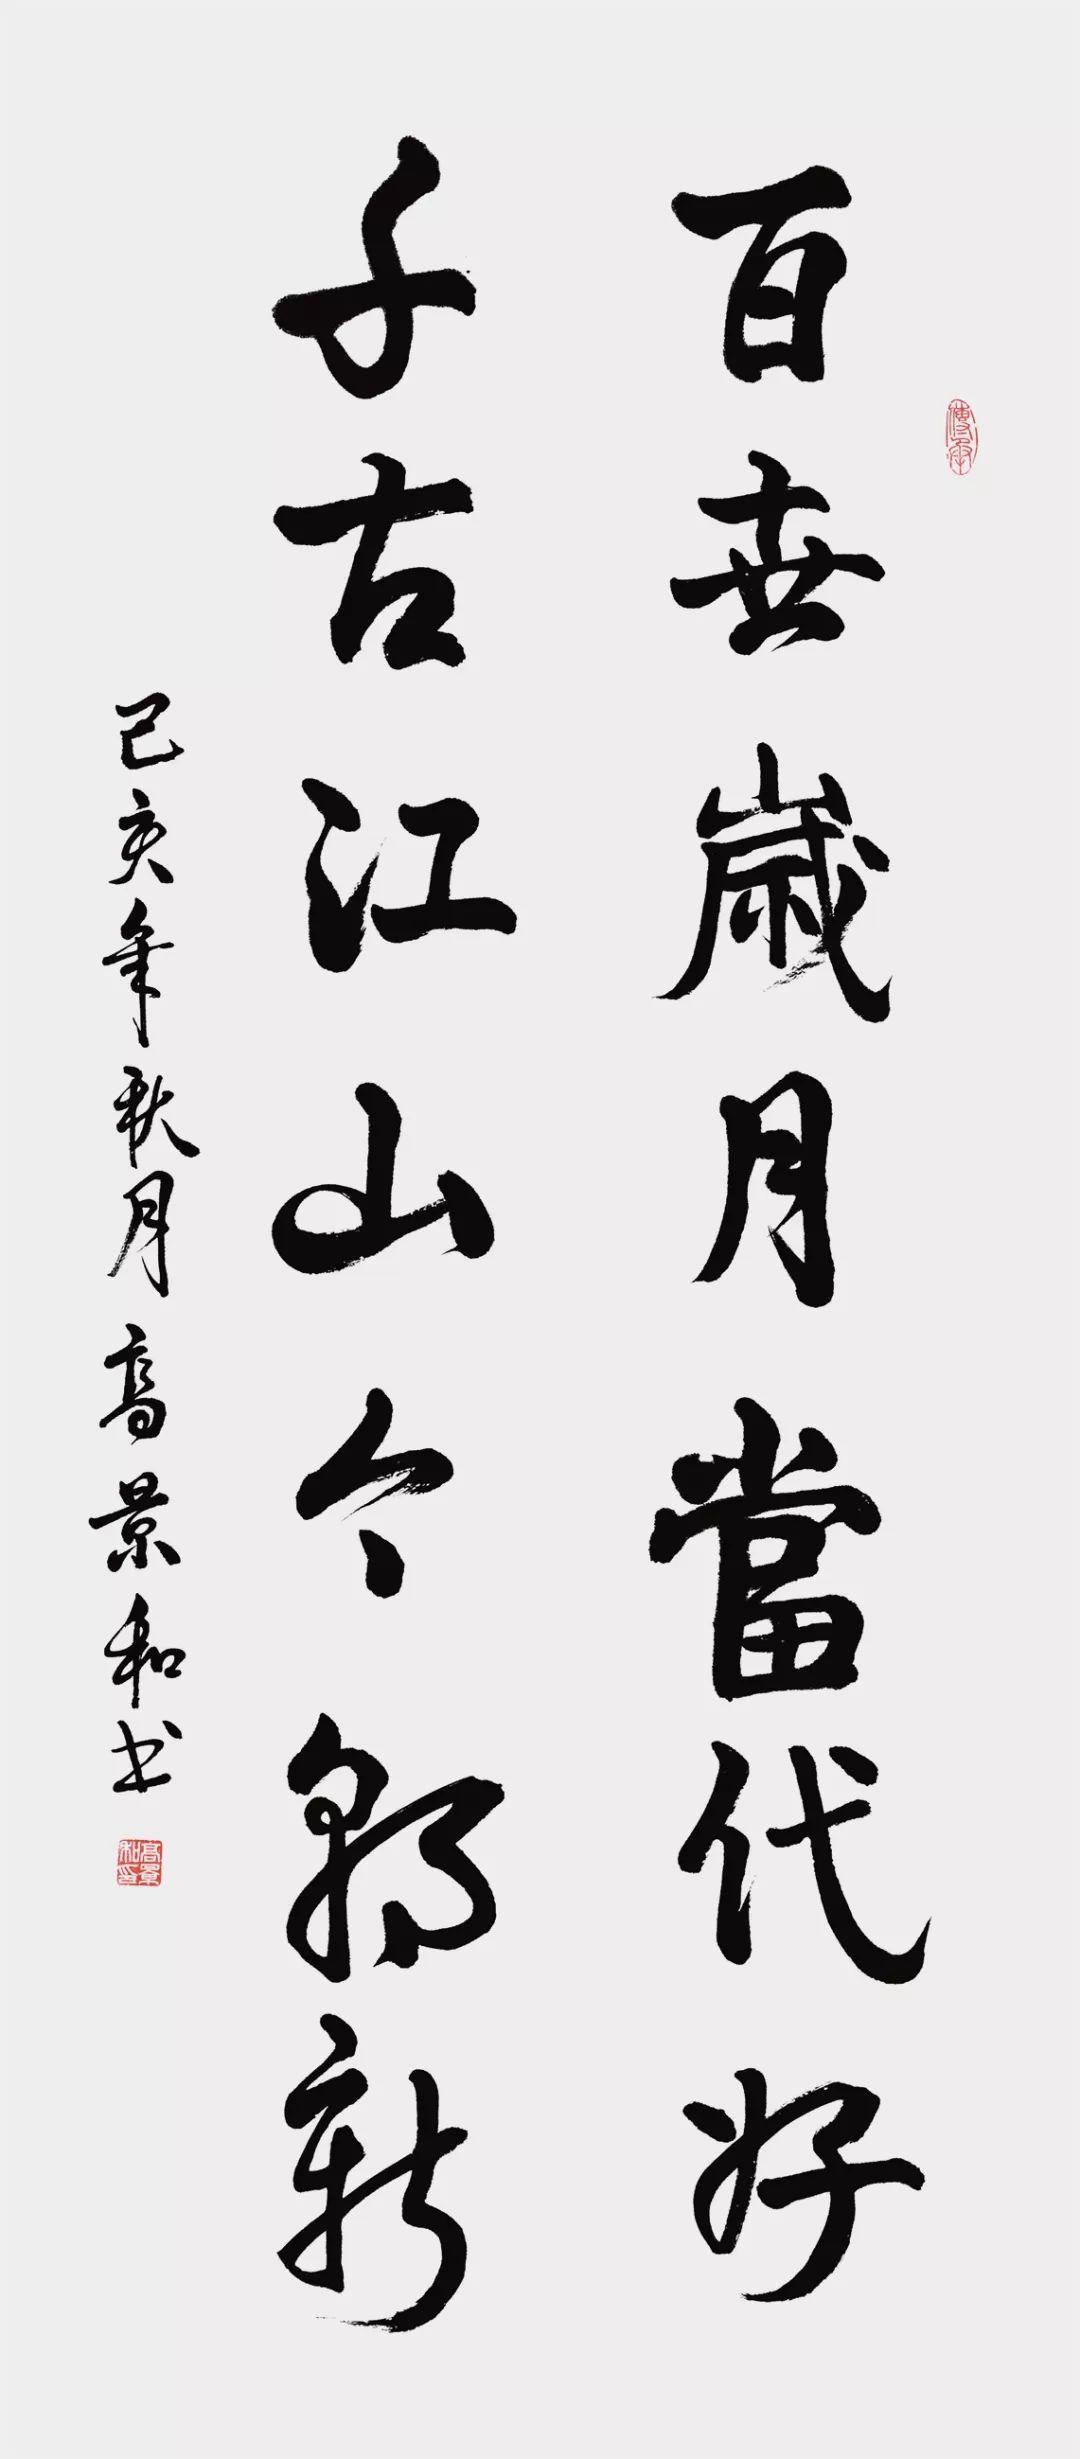 百世歲月當代好
千古江山今朝新
己亥年秋月高景和书
高景和印